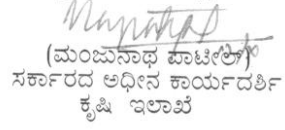 (ಮಂಜುನಾಥ ಪಾಟೀಲ್)
ಸರ್ಕಾರದ ಅಧೀನ ಕಾರ್ಯದರ್ಶಿ
ಕೃಷಿ ಇಲಾಖೆ